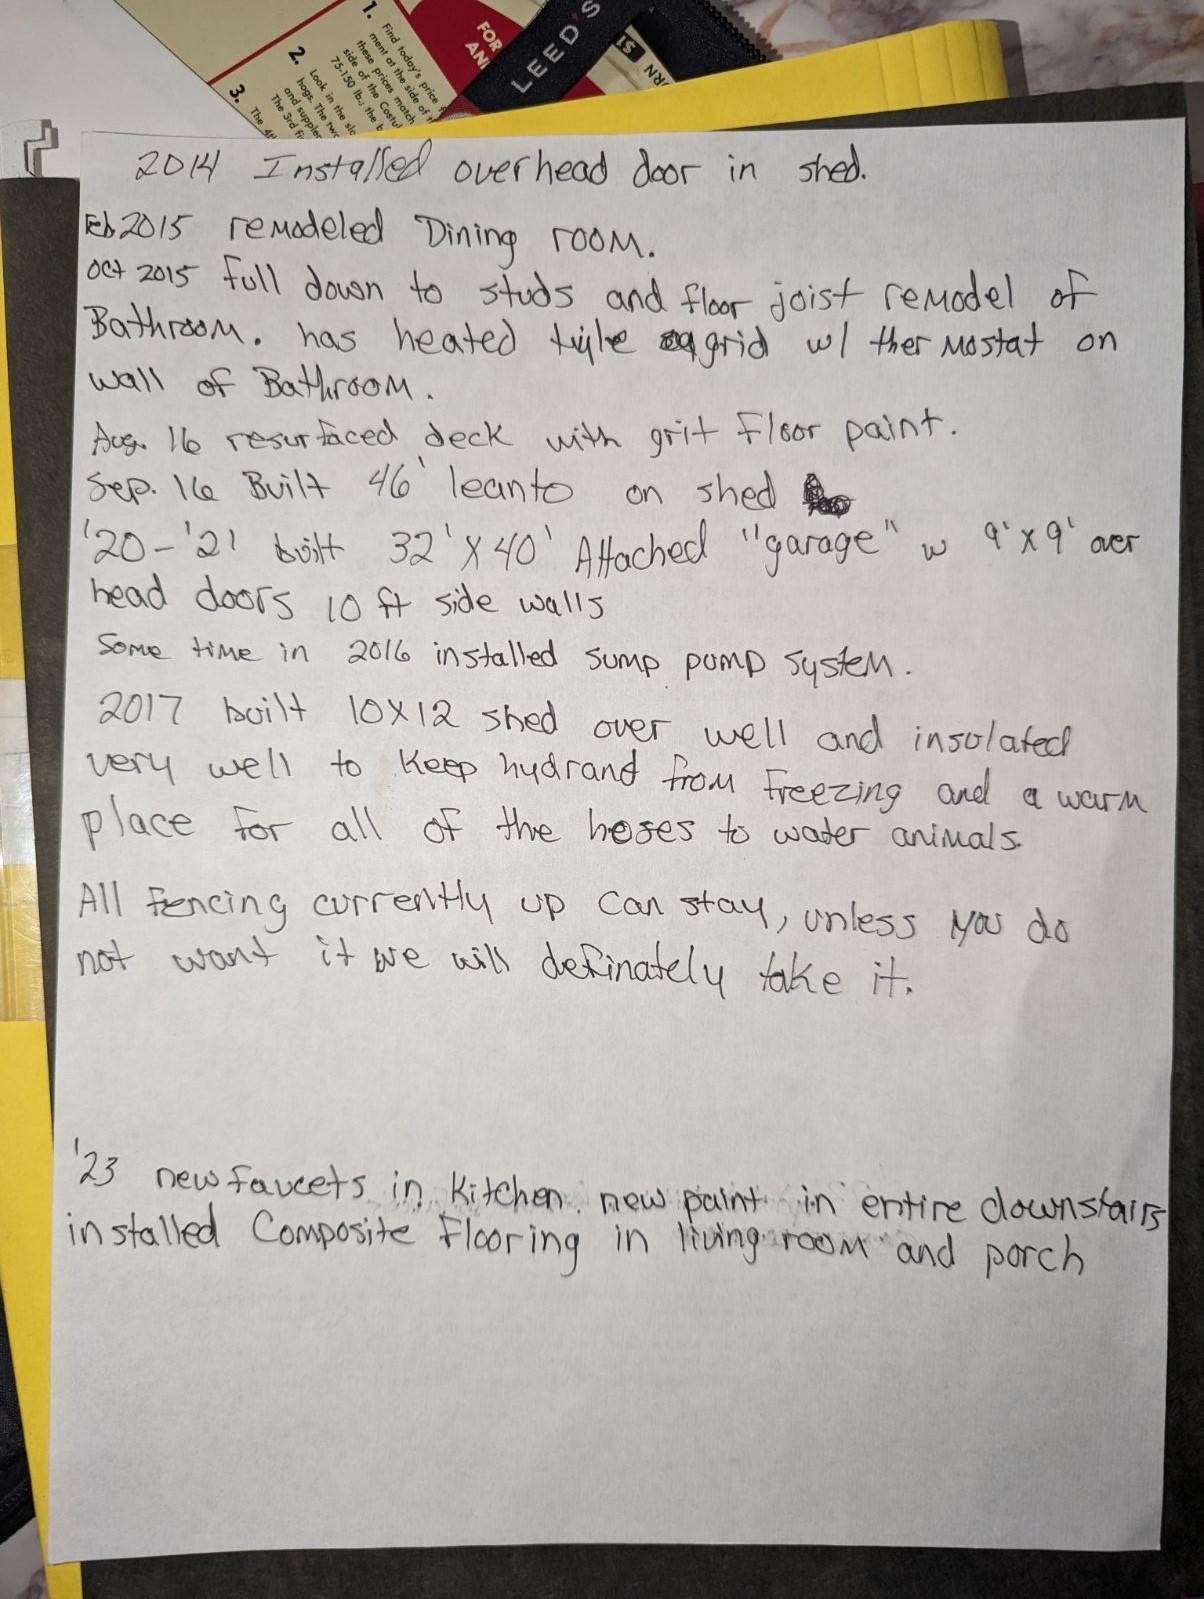 1. Find today's price
ment at the side of
these prices match
side of the
75-150 lb.; the b
2. Look in the
hogs. The two
and
3. The
The 3rd
FOR
AN
LEED'S
2014 Installed overhead door in shed.
Feb 2015 remodeled Dining room.
Oct 2015 full down to studs and floor joist remodel of
Bathroom. has heated tile grid w/ thermostat on
wall of Bathroom.
Aug. 16 resurfaced deck with grit floor paint.
Sep. 16 Built 46' leanto on shed
'20-'21 built 32' X 40' Attached "garage" w 9' x 9' over
head doors 10 ft side walls
Some time in 2016 installed sump pump system.
2017 built 10X12 shed over well and insulated
very well to keep hydrand from freezing and a warm
place for all of the hoses to water animals.
All fencing currently up can stay, unless you do
not want it we will definately take it.
'23 new faucets in kitchen. new paint in entire downstairs
installed Composite flooring in living room and porch